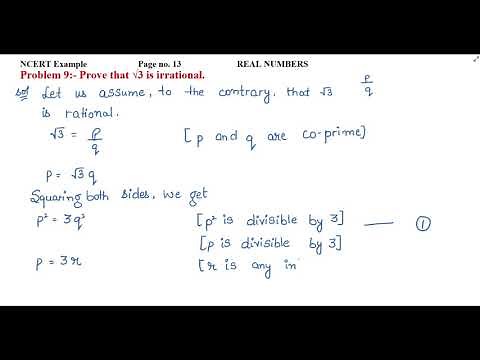 NCERT Example Page no. 13 REAL NUMBERS
Problem 9:- Prove that √3 is irrational.
Sol Let us assume, to the contrary, that √3 p/q
is rational.
√3 = p/q [p and q are co-prime]
p = √3 q
Squaring both sides, we get
p² = 3q² [p² is divisible by 3] —— ①
[p is divisible by 3]
p = 3r [r is any in